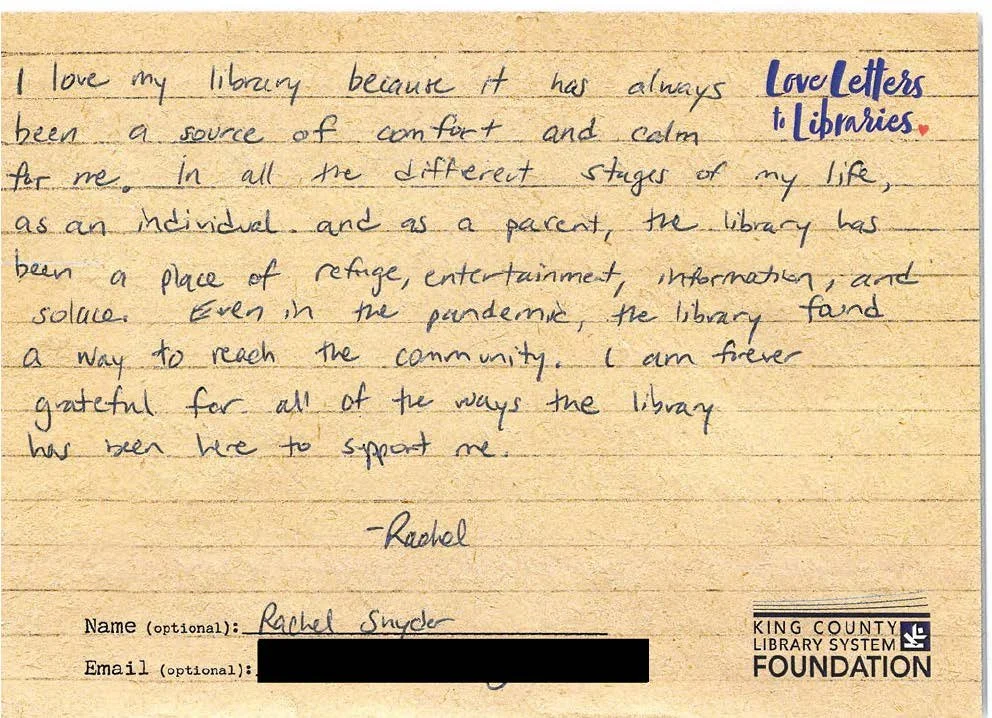 I love my library because it has always
been a source of comfort and calm
for me. In all the different stages of my life,
as an individual and as a parent, the library has
been a place of refuge, entertainment, information, and
solace. Even in the pandemic, the library found
a way to reach the community. I am forever
grateful for all of the ways the library
has been here to support me.
-Rachel
Love Letters
to Libraries
Name (optional): Rachel Snyder
Email (optional):
KING COUNTY
LIBRARY SYSTEM
FOUNDATION